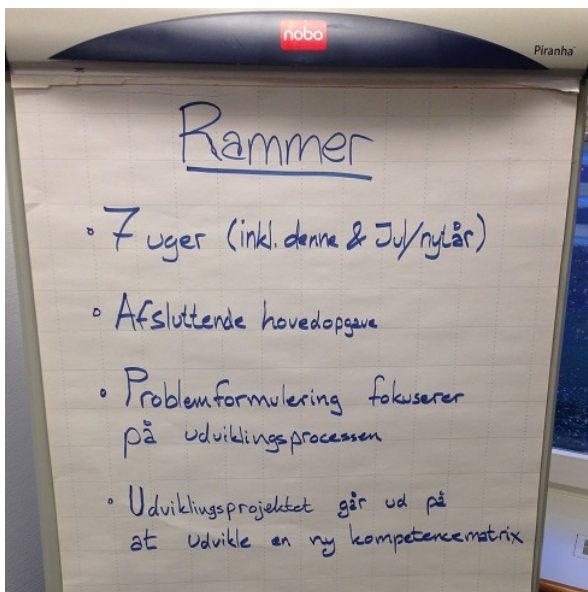 nobo
Piranha
Rammer
• 7 uger (inkl. denne & Jul/nytår)
• Afsluttende hovedopgave
• Problemformulering fokuserer
på udviklingsprocessen
• Udviklingsprojektet går ud på
at udvikle en ny kompetencematrix